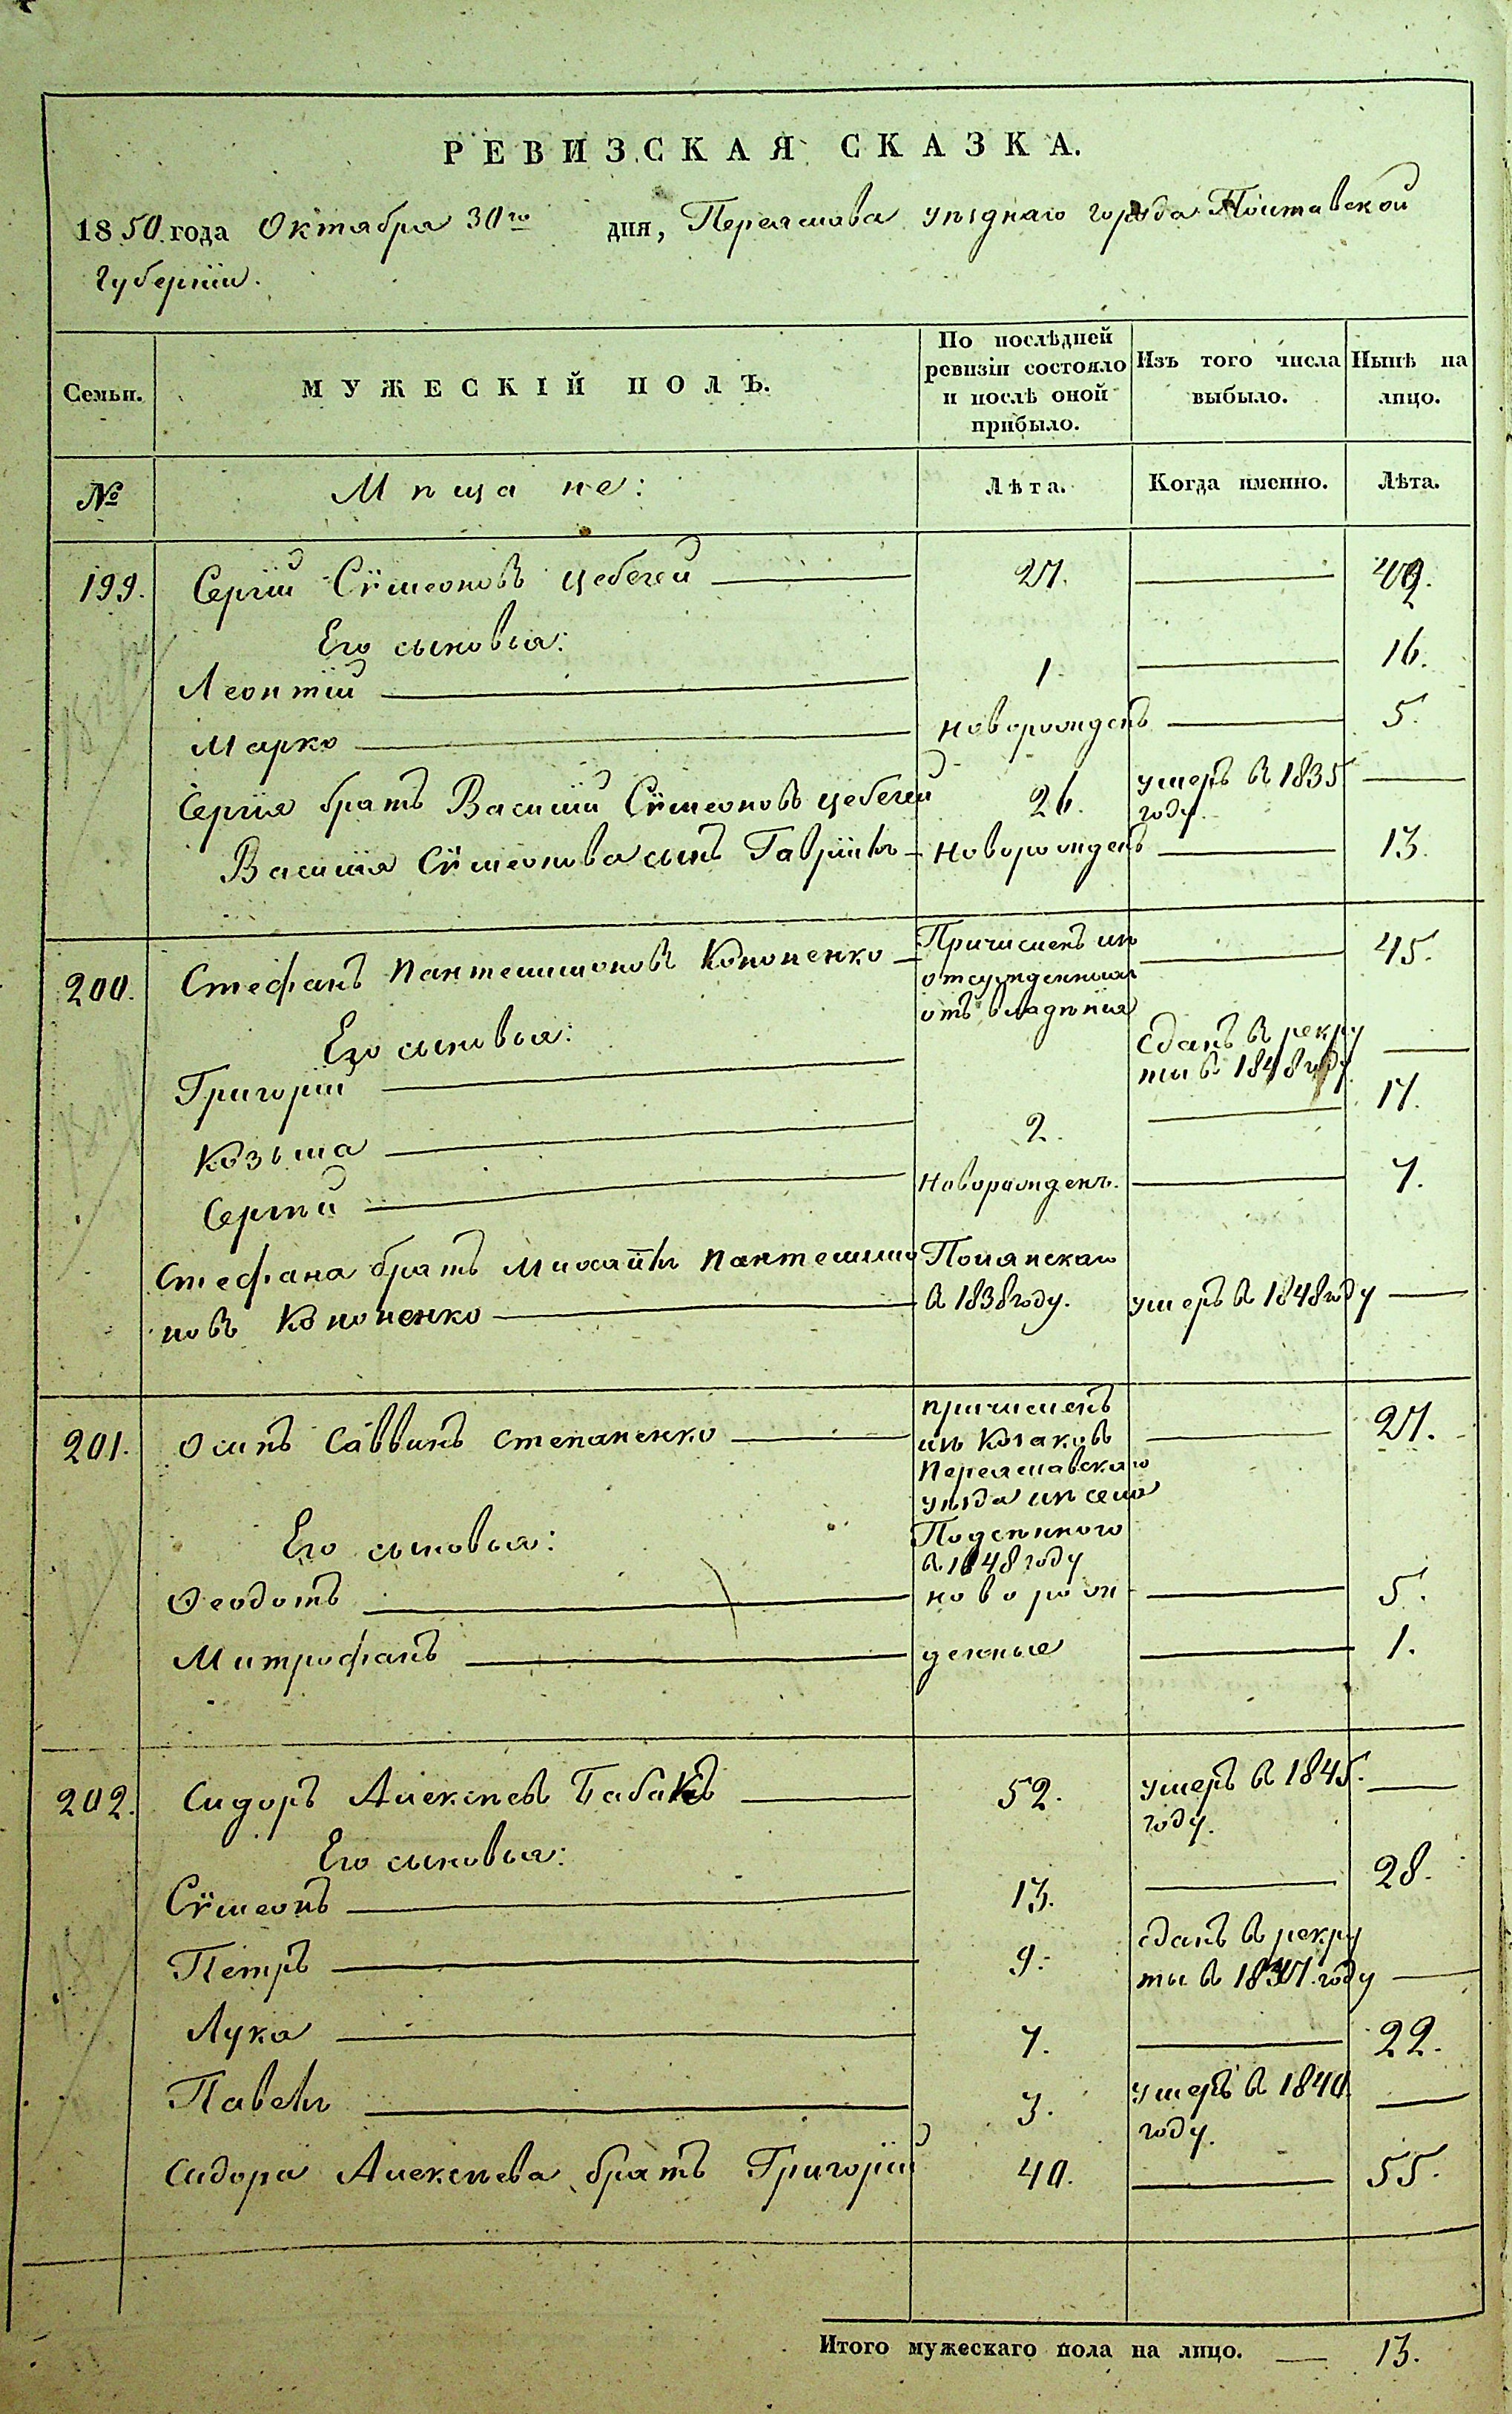 РЕВИЗСКАЯ СКАЗКА.
1850 года Октября 30го дня, Переяслова уѣзднаго города Полтавской
Губерніи.
Семьи. МУЖЕСКІЙ ПОЛЪ. По послѣдней ревизіи состояло и послѣ оной прибыло. Изъ того числа выбыло. Нынѣ на лицо.
№ Мѣщане: Лѣта. Когда именно. Лѣта.
199. Сергій Сѵмеоновъ Цебегей 27. 42.
Его сыновья:
Леонтій 1. 16.
Марко новорожденъ 5.
Сергія братъ Василій Сѵмеоновъ Цебегей 26. умеръ въ 1835 году.
Василія Сѵмеонова сынъ Гавріилъ новорожденъ 13.
200. Стефанъ Пантелимоновъ Кононенко Причисленъ изъ 45.
отсужденныхъ
отъ владѣнія
Его сыновья:
Григорій Сданъ въ рекру
ты въ 1848 году
Козьма 2. 17.
Сергѣй Новорожденъ. 7.
Стефана братъ Михаилъ Пантелимо
новъ Кононенко въ 1838 году. умеръ въ 1848 году
201. Осипъ Саввинъ Степаненко причисленъ 27.
изъ Козаковъ
Переяславскаго
уѣзда изъ села
Его сыновья:
въ 1848 году
Ѳеодотъ новорож 5.
Митрофанъ денные 1.
202. Сидоръ Алексѣевъ Бабакъ 52. умеръ въ 1845.
году.
Его сыновья:
Сѵмеонъ 13. 28.
Петръ 9. сданъ въ рекру
ты въ году
Лука 7. 22.
Павелъ 3. умеръ въ 1840.
году.
Сидора Алексѣева братъ Григорій 40. 55.
Итого мужескаго пола на лицо. 13.